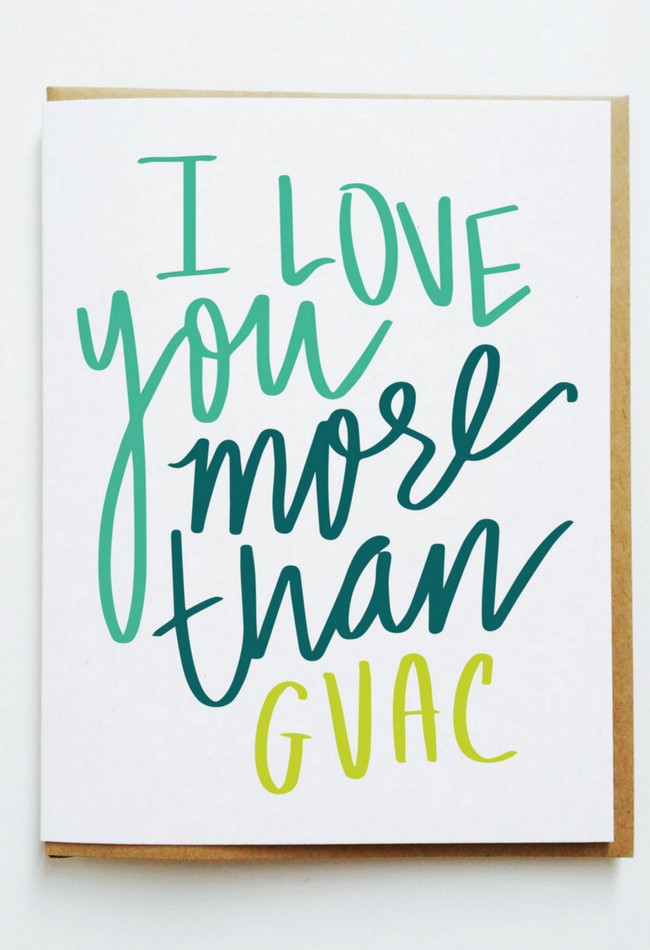 I LOVE
you
more
than
GUAC